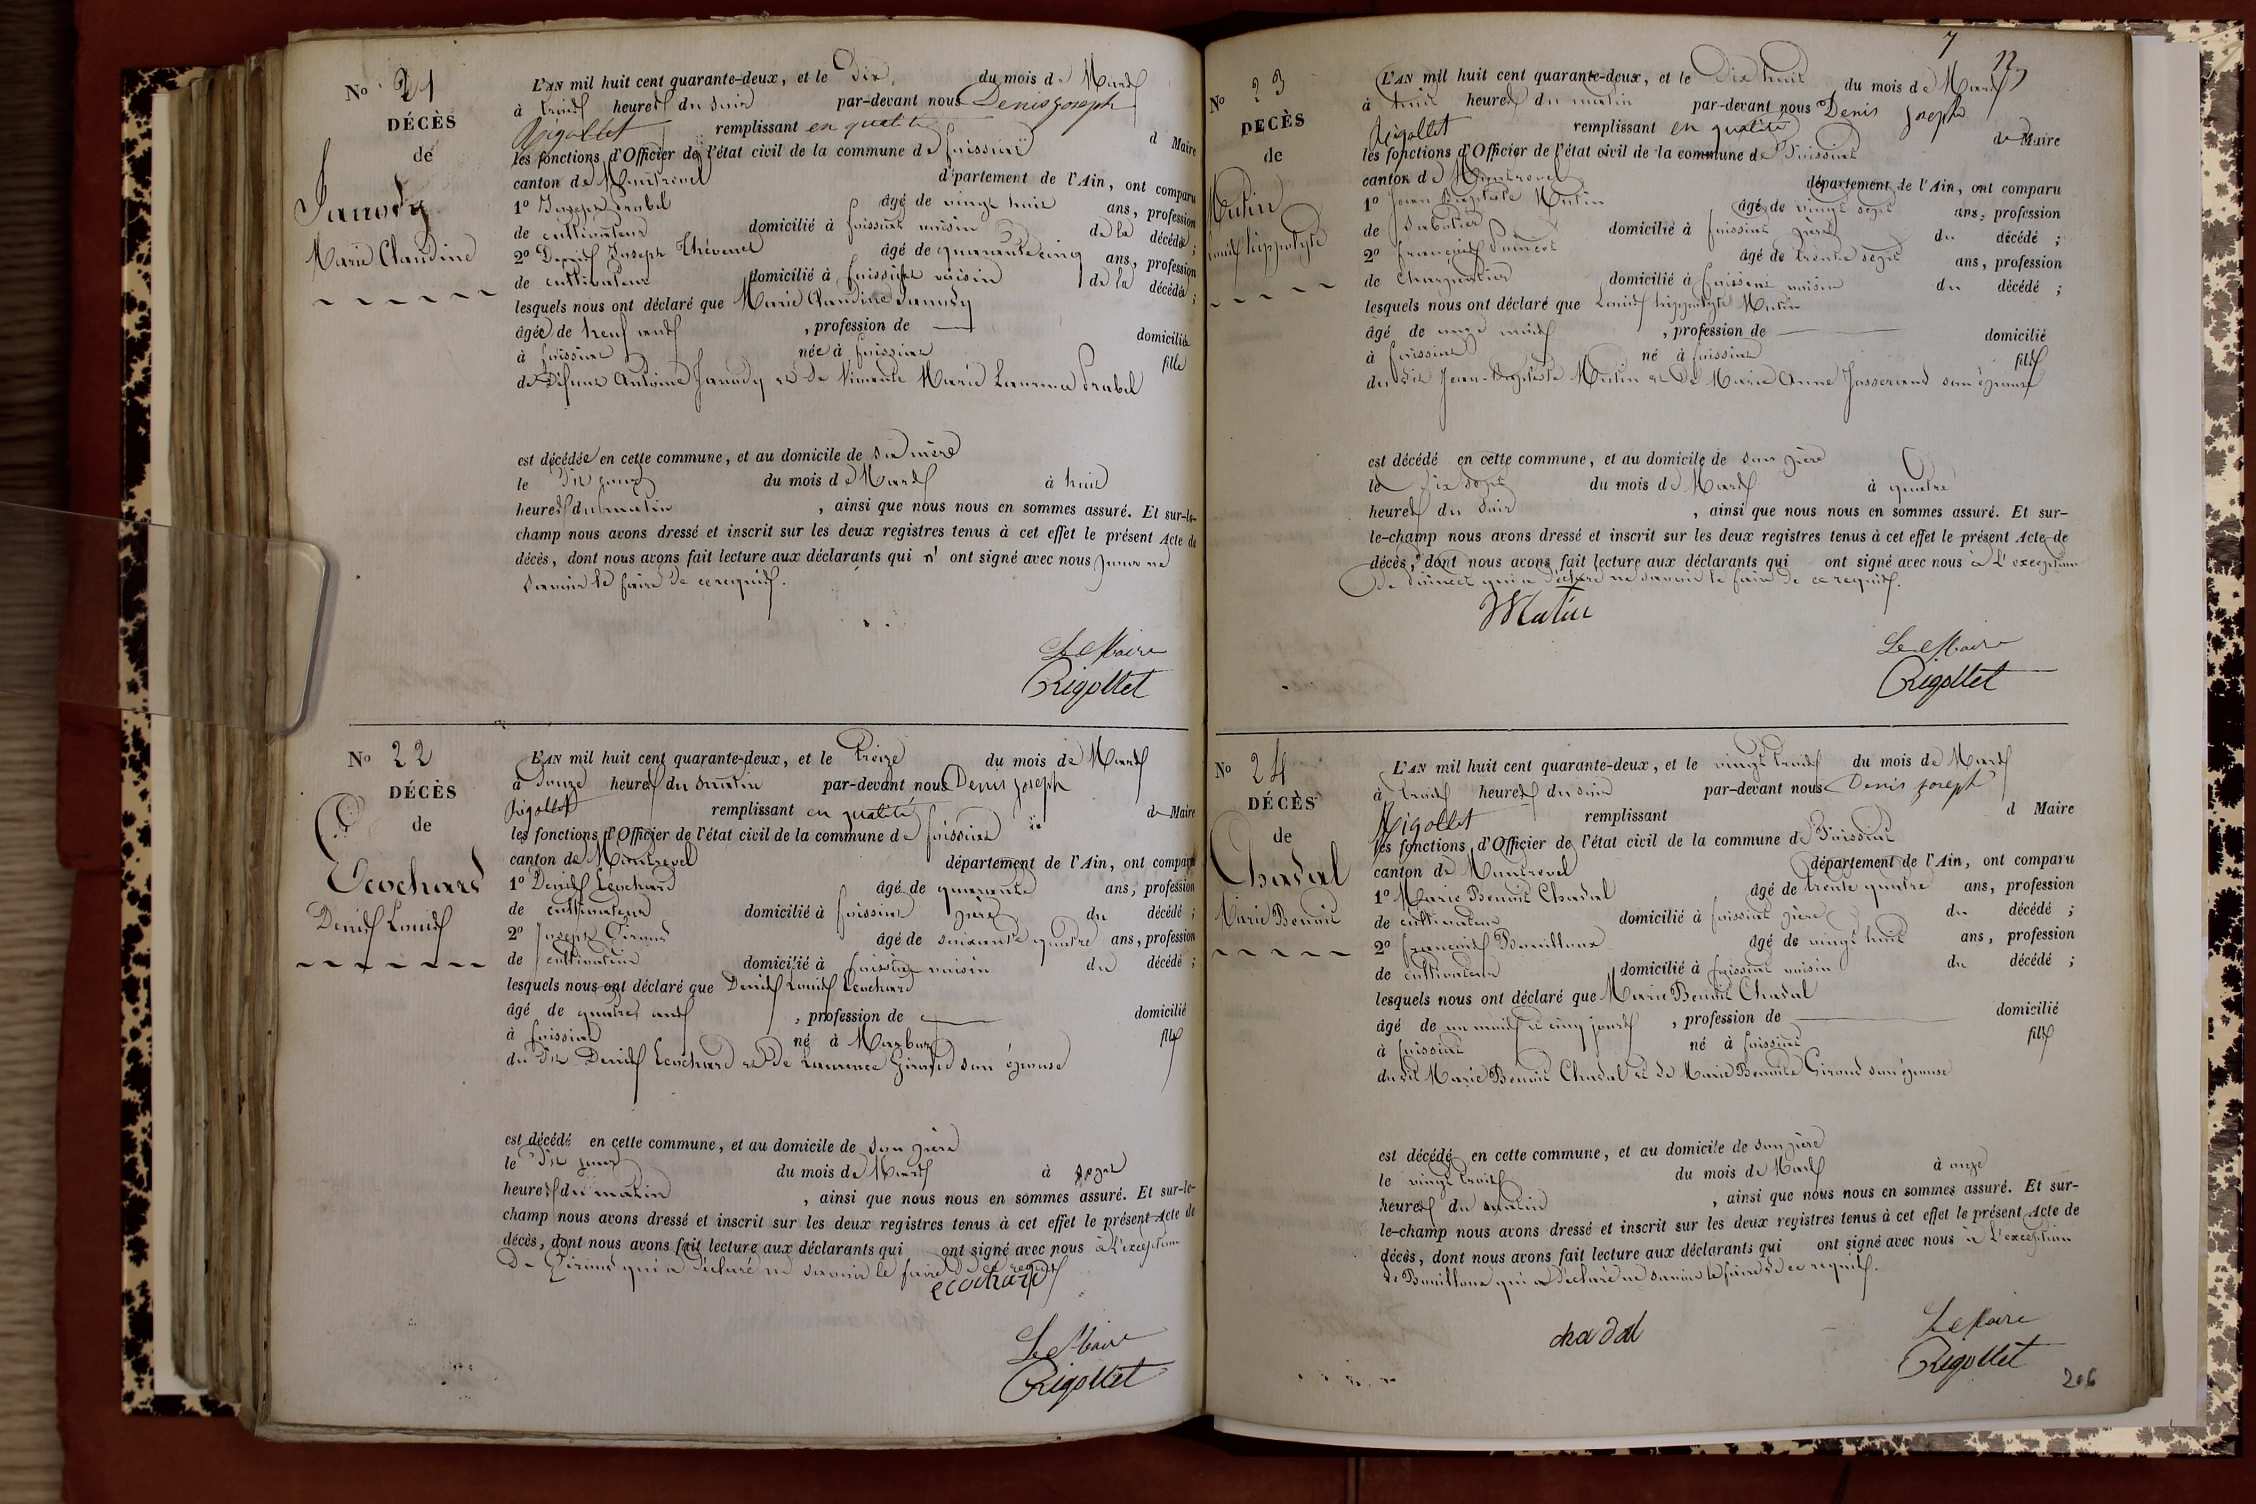 No 21
DÉCÈS
de
Janody
Marie Claudine
L'AN mil huit cent quarante-deux, et le Dix du mois de Mars
à trois heures du soir par-devant nous Denis Joseph
Rigollet remplissant en qualité d Maire
les fonctions d'Officier de l'état civil de la commune de foissiat
canton de Montrevel département de l'Ain, ont comparu
1o Joseph Prabel âgé de vingt huit ans, profession
de cultivateur domicilié à foissiat voisin de la décédée ;
2o Denis Joseph Thévenet âgé de quarante cinq ans, profession
de cultivateur domicilié à foissiat voisin de la décédée ;
lesquels nous ont déclaré que Marie Claudine Janody
âgée de neuf ans , profession de domiciliée
à foissiat née à foissiat fille
de Défunt Antoine Janody et de vivante Marie Laurence Prabel
est décédée en cette commune, et au domicile de sa mère
le dit jour du mois de Mars à huit
heures du matin , ainsi que nous nous en sommes assuré. Et sur-le-
champ nous avons dressé et inscrit sur les deux registres tenus à cet effet le présent Acte de
décès, dont nous avons fait lecture aux déclarants qui n' ont signé avec nous pour ne
savoir le faire de ce requis.
Le Maire
Rigollet
No 22
DÉCÈS
de
Ecochard
Denis Louis
L'AN mil huit cent quarante-deux, et le treize du mois de Mars
à Douze heures du matin par-devant nous Denis Joseph
Rigollet remplissant en qualité de Maire
les fonctions d'Officier de l'état civil de la commune de foissiat
canton de Montrevel département de l'Ain, ont comparu
1o Denis Ecochard âgé de quarante ans, profession
de cultivateur domicilié à foissiat père du décédé ;
2o Joseph Giroud âgé de soixante quatre ans, profession
de cultivateur domicilié à foissiat voisin du décédé ;
lesquels nous ont déclaré que Denis Louis Ecochard
âgé de quatre ans , profession de domicilié
à foissiat né à Marboz fils
du dit Denis Ecochard et De Laurence Giroud son épouse
est décédé en cette commune, et au domicile de son père
le dit jour du mois de Mars à sept
heures du matin , ainsi que nous nous en sommes assuré. Et sur-le-
champ nous avons dressé et inscrit sur les deux registres tenus à cet effet le présent Acte de
décès, dont nous avons fait lecture aux déclarants qui ont signé avec nous à l'exception
De Giroud qui a déclaré ne savoir le faire de ce requis
ecochard
Le Maire
Rigollet
7
No 23
DÉCÈS
de
Mutin
Louis hippolyte
L'AN mil huit cent quarante-deux, et le Dix huit du mois de Mars
à huit heures du matin par-devant nous Denis Joseph
Rigollet remplissant en qualité de Maire
les fonctions d'Officier de l'état civil de la commune de Foissiat
canton de Montrevel département de l'Ain, ont comparu
1o Jean Baptiste Mutin âgé de vingt sept ans, profession
de Sabotier domicilié à foissiat père du décédé ;
2o françois âgé de trente sept ans, profession
de Charpentier domicilié à foissiat voisin du décédé ;
lesquels nous ont déclaré que Louis hippolyte Mutin
âgé de onze mois , profession de domicilié
à foissiat né à foissiat fils
du dit Jean-Baptiste Mutin et De Marie Anne Josserand son épouse
est décédé en cette commune, et au domicile de son père
le dix sept du mois de Mars à quatre
heures du soir , ainsi que nous nous en sommes assuré. Et sur-
le-champ nous avons dressé et inscrit sur les deux registres tenus à cet effet le présent Acte de
décès, dont nous avons fait lecture aux déclarants qui ont signé avec nous à L'exception
de qui a déclaré ne savoir le faire de ce requis.
Mutin
Le Maire
Rigollet
No 24
DÉCÈS
de
Chadal
Marie Benoit
L'AN mil huit cent quarante-deux, et le vingt trois du mois de Mars
à trois heures du soir par-devant nous Denis Joseph
Rigollet remplissant d Maire
les fonctions d'Officier de l'état civil de la commune de Foissiat
canton de Montrevel département de l'Ain, ont comparu
1o Marie Benoit Chadal âgé de trente quatre ans, profession
de cultivateur domicilié à foissiat père du décédé ;
2o françois Bouilloux âgé de vingt huit ans, profession
de cultivateur domicilié à foissiat voisin du décédé ;
lesquels nous ont déclaré que Marie Benoit Chadal
âgé de un mois et cinq jours , profession de domicilié
à foissiat né à foissiat fils
du dit Marie Benoit Chadal et de Marie Benoite Giroud son épouse
est décédé en cette commune, et au domicile de son père
le vingt trois du mois de Mars à onze
heures du matin , ainsi que nous nous en sommes assuré. Et sur-
le-champ nous avons dressé et inscrit sur les deux registres tenus à cet effet le présent Acte de
décès, dont nous avons fait lecture aux déclarants qui ont signé avec nous à L'exception
de Bouilloux qui a déclaré ne savoir le faire de ce requis.
chadal
Le Maire
Rigollet
206